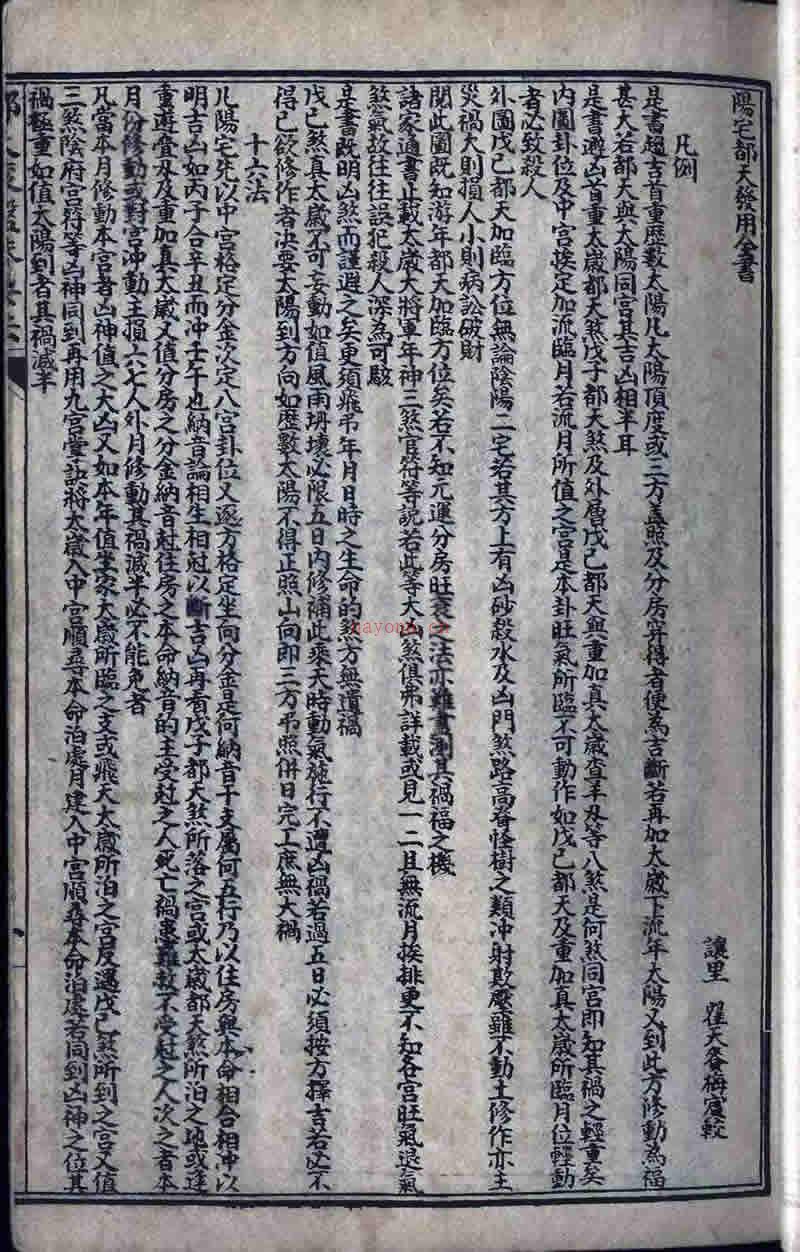 陽宅都天發用全書
讓里 瞿天賚梅窻較
凡例
是書趨吉首重歷數太陽凡太陽頂度或三方蓋照及分房穿得者便為吉斷若再加太歲下流年太陽又到此方修動為福
甚大若都天與太陽同宮其吉凶相半耳
是書遊凶首重太歲都天煞戊子都天煞及外層戊己都天與重加真太歲查羊刄等八煞是何煞同宮即知其禍之輕重矣
內圖卦位及中宮挨定加流臨月若流月所值之宮是本卦旺氣所臨不可動作如戊己都天及重加真太歲所臨月位輕動
者必致殺人
外圖戊己都天加臨方位無論陰陽二宅若其方上有凶砂殺水及凶門煞路高脊怪樹之類冲射欺壓雖不動土修作亦主
災禍大則損人小則病訟破財
閱此圖既知游年都天加臨方位矣若不知元運分房旺衰之法亦難盡測其禍福之機
諸家通書止載太歲大將軍年神三煞官符等說若此等大煞俱弗詳載或見一二且無流月挨排更不知各宮旺氣退氣
煞氣故往往誤犯殺人深為可駭
是書既明凶煞而謹避之矣更須飛弔年月日時之生命的煞方無遺禍
戊己煞真太歲不可妄動如值風雨坍壞必限五日內修補此乘天時動氣施行不遭凶禍若過五日必須按方擇吉若必不
得已欲修作者决要太陽到方向如歷數太陽不得正照山向即三方弔照併日完工庶無大禍
十六法
凡陽宅先以中宮格定分金次定八宮卦位又逐方格定坐向分金是何納音干支屬何五行乃以住房與本命相合相冲以
明吉凶如丙子合辛丑而冲壬午也納音論相生相尅以斷吉凶再看戊子都天煞所落之宮或太歲都天煞所泊之地或達
重遊疊刄及重加真太歲又值分房之分金納音尅住房之本命納音的主受尅之人死亡禍患難救不受尅之人次之者本
月份修動或對宮冲動主損六七人外月修動其禍減半必不能免者
凡當本月修動本宮者凶神值之大凶又如本年值坐家太歲所臨之支或飛天太歲所泊之宮反遇戊己煞所到之宮又值
三煞陰府官符等凶神同到再用九宮掌訣將太歲入中宮順尋本命泊處月建入中宮順尋本命泊處若同到凶神之位其
禍極重如值太陽到者其禍減半
nayona.cn